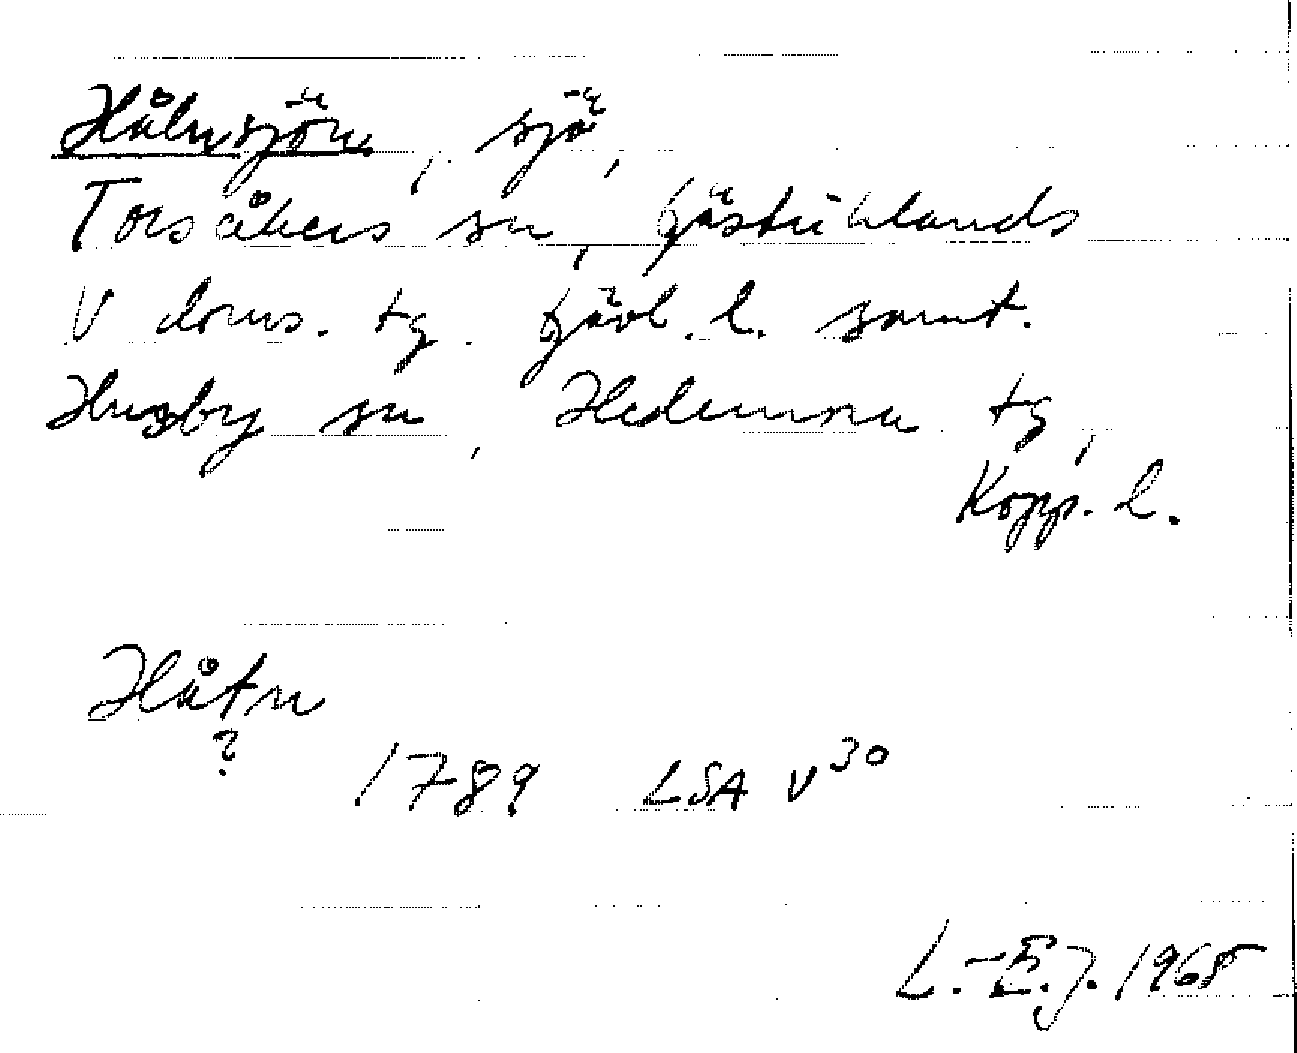 Hålnsjön, sjö,
Torsåkers sn, Gästriklands
V doms. tg. Gävl. l. samt.
Husby sn, Hedemora tg,
Kopp. l.
Håtn
?
1789 LSA V30
L.-E.J. 1965